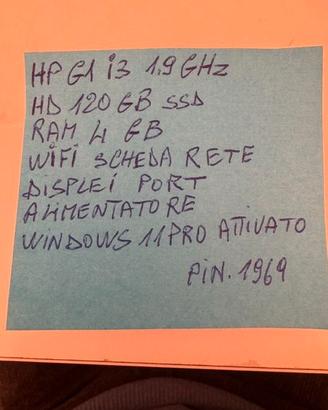 HP G1 i3 1,9 GHz
HD 120 GB SSD
RAM 4 GB
WIFI SCHEDA RETE
DISPLEI PORT
ALIMENTATORE
WINDOWS 11 PRO ATTIVATO
PIN. 1969